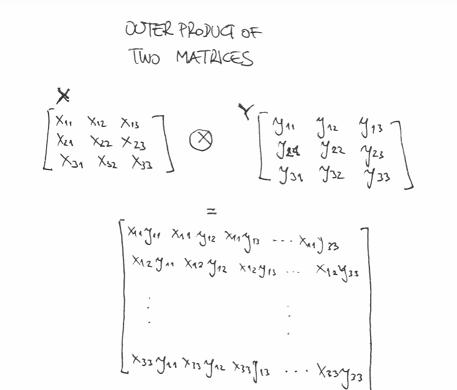 OUTER PRODUCT OF
TWO MATRICES
X
Y
x11 x12 x13
x21 x22 x23
x31 x32 x33
⊗
y11 y12 y13
y21 y22 y23
y31 y32 y33
=
x11y11 x11y12 x11y13 ... x11y33
x12y11 x12y12 x12y13 ... x12y33
⋮ ⋮
x33y11 x33y12 x33y13 ... x33y33